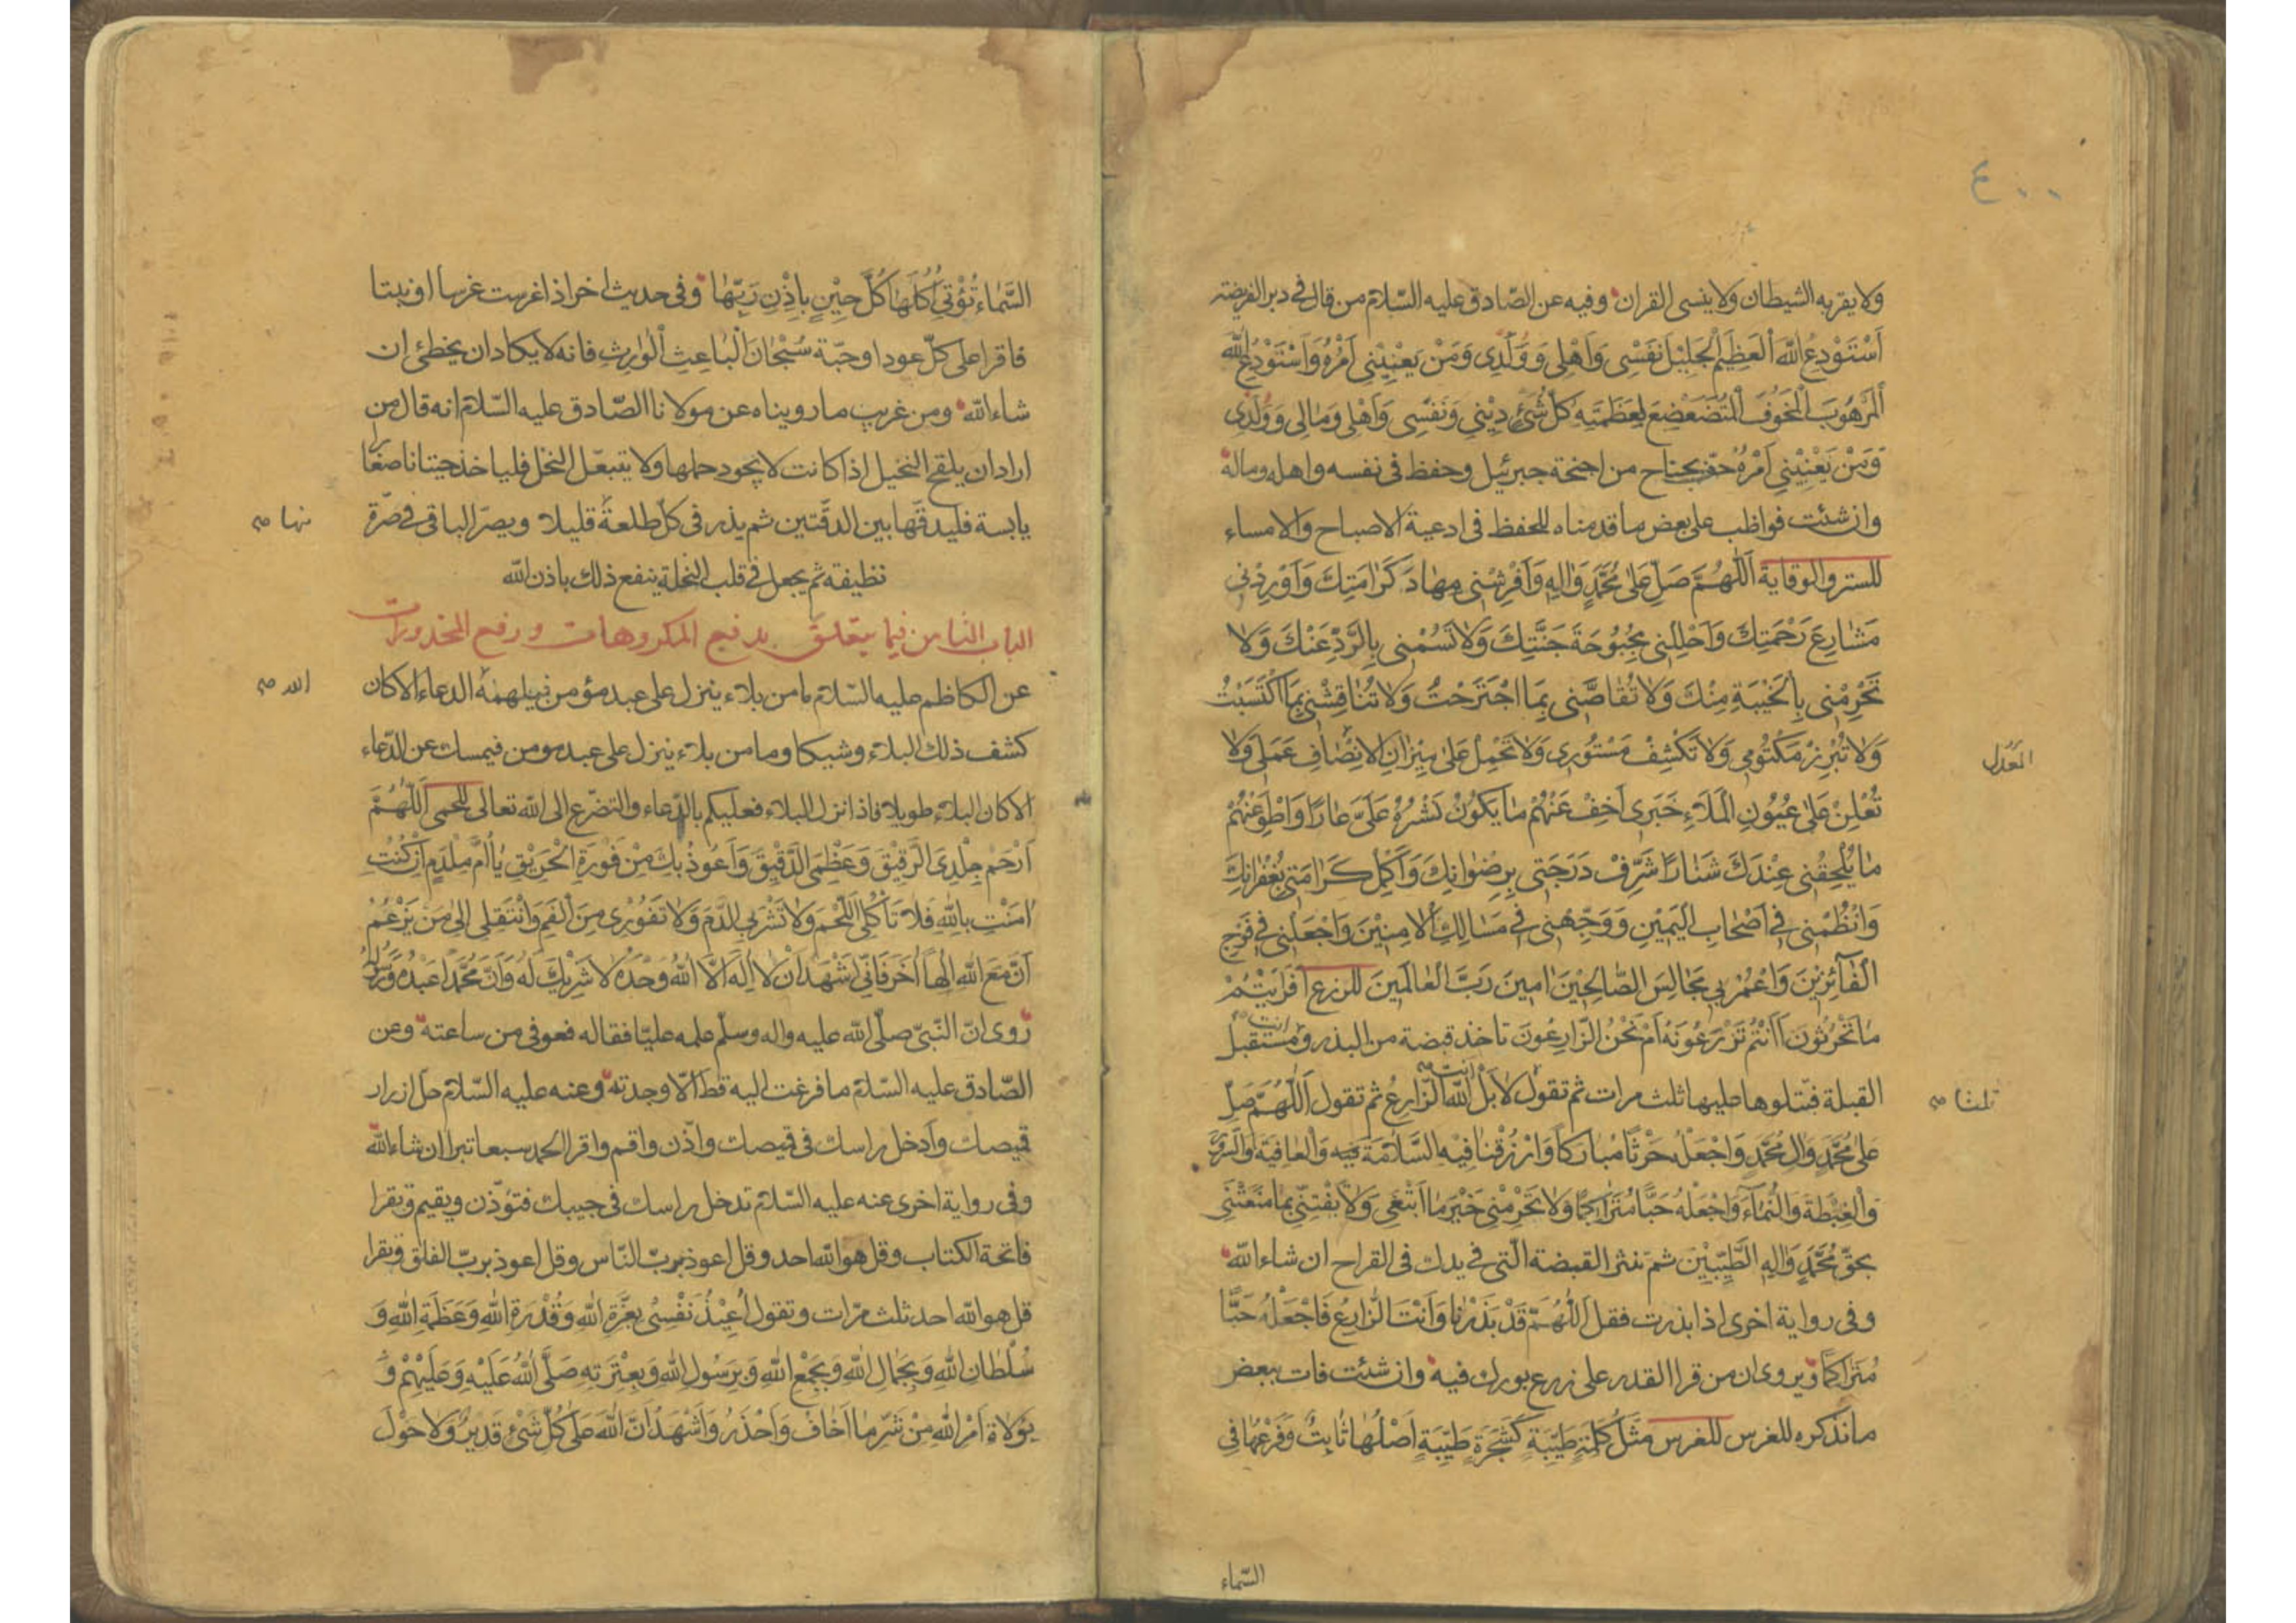 ٤٠٠
ولا يقربه الشيطان ولا ينسى القران وفيه عن الصّادق عليه السّلام من قال في دبر الفريضة
اَسْتَوْدِعُ اللهَ الْعَظِيْمَ الْجَلِيْلَ نَفْسِى وَاَهْلِى وَوُلْدِى وَمَنْ يَعْنِيْنِى اَمْرُهُ وَاَسْتَوْدِعُ اللهَ
الْمَرْهُوبَ الْمَخُوفَ الْمُتَضَعْضِعَ لِعَظَمَتِهِ كُلُّ شَىْءٍ دِيْنِى وَنَفْسِى وَاَهْلِى وَمَالِى وَوُلْدِى
وَمَنْ يَعْنِيْنِى اَمْرُهُ حفّ بجناح من اجنحة جبرئيل وحفظ فى نفسه واهله وماله
وان شئت فواظب على بعض ما قدمناه للحفظ فى ادعية الاصباح والامساء
للستر والوقاية اَللّٰهُمَّ صَلِّ عَلٰى مُحَمَّدٍ وَاٰلِهِ وَاَفْرِشْنِى مِهَادَ كَرَامَتِكَ وَاَوْرِدْنِى
مَشَارِعَ رَحْمَتِكَ وَاَحْلِلْنِى بُحْبُوحَةَ جَنَّتِكَ وَلَا تَسُمْنِى بِالرَّدِّ عَنْكَ وَلَا
تَحْرِمْنِى بِالْخَيْبَةِ مِنْكَ وَلَا تُقَاصَّنِى بِمَا اجْتَرَحْتُ وَلَا تُنَاقِشْنِى بِمَا اكْتَسَبْتُ
وَلَا تُبْرِزْ مَكْتُومِى وَلَا تَكْشِفْ مَسْتُورِى وَلَا تَحْمِلْ عَلٰى مِيْزَانِ الْاِنْصَافِ عَمَلِى وَلَا
المعدل
تُعْلِنْ عَلٰى عُيُونِ الْمَلَاءِ خَبَرِى اَخْفِ عَنْهُمْ مَا يَكُونُ نَشْرُهُ عَلَىَّ عَارًا وَاطْوِ عَنْهُمْ
مَا يُلْحِقُنِى عِنْدَكَ شَنَارًا شَرِّفْ دَرَجَتِى بِرِضْوَانِكَ وَاَكْمِلْ كَرَامَتِى بِغُفْرَانِكَ
وَانْظِمْنِى فِى اَصْحَابِ الْيَمِيْنِ وَوَجِّهْنِى فِى مَسَالِكِ الْاٰمِنِيْنَ وَاجْعَلْنِى فِى فَوْجِ
الْفَائِزِيْنَ وَاعْمُرْ بِى مَجَالِسَ الصَّالِحِيْنَ اٰمِيْنَ رَبَّ الْعَالَمِيْنَ للزرع اَفَرَاَيْتُمْ
مَا تَحْرُثُونَ اَاَنْتُمْ تَزْرَعُونَهُ اَمْ نَحْنُ الزَّارِعُونَ تاخذ قبضة من البذر وانت مستقبل
القبلة فتتلوها عليها ثلث مرات ثم تقول لَا بَلْ اَنْتَ اللهُ الزَّارِعُ ثم تقول اَللّٰهُمَّ صَلِّ
ثلثا صح
عَلٰى مُحَمَّدٍ وَاٰلِ مُحَمَّدٍ وَاجْعَلْهُ حَرْثًا مُبَارَكًا وَارْزُقْنَا فِيْهِ السَّلَامَةَ فِيهِ وَالْعَافِيَةَ وَالسُّرُورَ
وَالْغِبْطَةَ وَالنَّمَاءَ وَاجْعَلْهُ حَبًّا مُتَرَاكِمًا وَلَا تَحْرِمْنِى خَيْرَ مَا اَبْتَغِى وَلَا تَفْتِنِّى بِمَا مَنَعْتَنِى
بِحَقِّ مُحَمَّدٍ وَاٰلِهِ الطَّيِّبِيْنَ ثمّ تنثر القبضة الّتى فى يدك فى القراح ان شاء الله
وفى رواية اخرى اذا بذرت فقل اَللّٰهُمَّ قَدْ بَذَرْنَا وَاَنْتَ الزَّارِعُ فَاجْعَلْهُ حَبًّا
مُتَرَاكِمًا ويروى ان من قرا القدر على زرع بورك فيه وان شئت فات ببعض
ما نذكره للغرس للغرس مَثَلُ كَلِمَةٍ طَيِّبَةٍ كَشَجَرَةٍ طَيِّبَةٍ اَصْلُهَا ثَابِتٌ وَفَرْعُهَا فِى
السّماء
السَّمَاءِ تُؤْتِى اُكُلَهَا كُلَّ حِيْنٍ بِاِذْنِ رَبِّهَا وفى حديث اخر اذا غرست غرسا او نبتا
فاقرا على كلّ عود او حبّة سُبْحَانَ الْبَاعِثِ الْوَارِثِ فانه لا يكاد ان يخطئ ان
شاء الله ومن غريب ما رويناه عن مولانا الصّادق عليه السّلام انه قال من
اراد ان يلقح النخيل اذا كانت لا يجود حملها ولا يتبعّل النخل فلياخذ حيتانا صغارا
يابسة فليدقّها بين الدقّتين ثم يذر فى كلّ طلعة قليلا ويصرّ الباقى فى صرّة
نها صح
نظيفة ثم يجعل فى قلب النخلة ينفع ذلك باذن الله
الباب الثامن فيما يتعلق بدفع المكروهات ورفع المحذورات
عن الكاظم عليه السّلام ما من بلاء ينزل على عبد مؤمن فيلهمه الدعاء الا كان
الله صح
كشف ذلك البلاء وشيكا وما من بلاء ينزل على عبد مومن فيمسك عن الدّعاء
الا كان البلاء طويلا فاذا نزل البلاء فعليكم بالدّعاء والتضرّع الى الله تعالى للحمى اَللّٰهُمَّ
اَرْحَمْ جِلْدِىَ الرَّقِيْقَ وَعَظْمِىَ الدَّقِيْقَ وَاَعُوذُ بِكَ مِنْ فَوْرَةِ الْحَرِيْقِ يَا اُمَّ مِلْدَمٍ اِنْ كُنْتِ
اٰمَنْتِ بِاللهِ فَلَا تَأْكُلِى اللَّحْمَ وَلَا تَشْرَبِى الدَّمَ وَلَا تَفُورِى مِنَ الْفَمِ وَانْتَقِلِى اِلٰى مَنْ يَزْعُمُ
اَنَّ مَعَ اللهِ اِلٰهًا اٰخَرَ فَاِنِّى اَشْهَدُ اَنْ لَا اِلٰهَ اِلَّا اللهُ وَحْدَهُ لَا شَرِيْكَ لَهُ وَاَنَّ مُحَمَّدًا عَبْدُهُ وَرَسُولُهُ
روى انّ النّبىّ صلّى الله عليه واله وسلّم علمه عليّا فقاله فعوفى من ساعته وعن
الصّادق عليه السّلام ما فرغت اليه قطّ الّا وجدته وعنه عليه السّلام حل ازرار
قميصك وادخل راسك فى قميصك واذّن واقم واقرا الحمد سبعا تبرا ان شاء الله
وفى رواية اخرى عنه عليه السّلام تدخل راسك فى جيبك فتؤذّن ويقيم ويقرا
فاتحة الكتاب وقل هو الله احد وقل اعوذ بربّ النّاس وقل اعوذ بربّ الفلق وتقرا
قل هو الله احد ثلث مرّات وتقول اُعِيْذُ نَفْسِى بِعِزَّةِ اللهِ وَقُدْرَةِ اللهِ وَعَظَمَةِ اللهِ وَ
سُلْطَانِ اللهِ وَبِجَمَالِ اللهِ وَبِجَمْعِ اللهِ وَبِرَسُولِ اللهِ وَبِعِتْرَتِهِ صَلَّى اللهُ عَلَيْهِ وَعَلَيْهِمْ وَ
بِوُلَاةِ اَمْرِ اللهِ مِنْ شَرِّ مَا اَخَافُ وَاَحْذَرُ وَاَشْهَدُ اَنَّ اللهَ عَلٰى كُلِّ شَىْءٍ قَدِيْرٌ وَلَا حَوْلَ